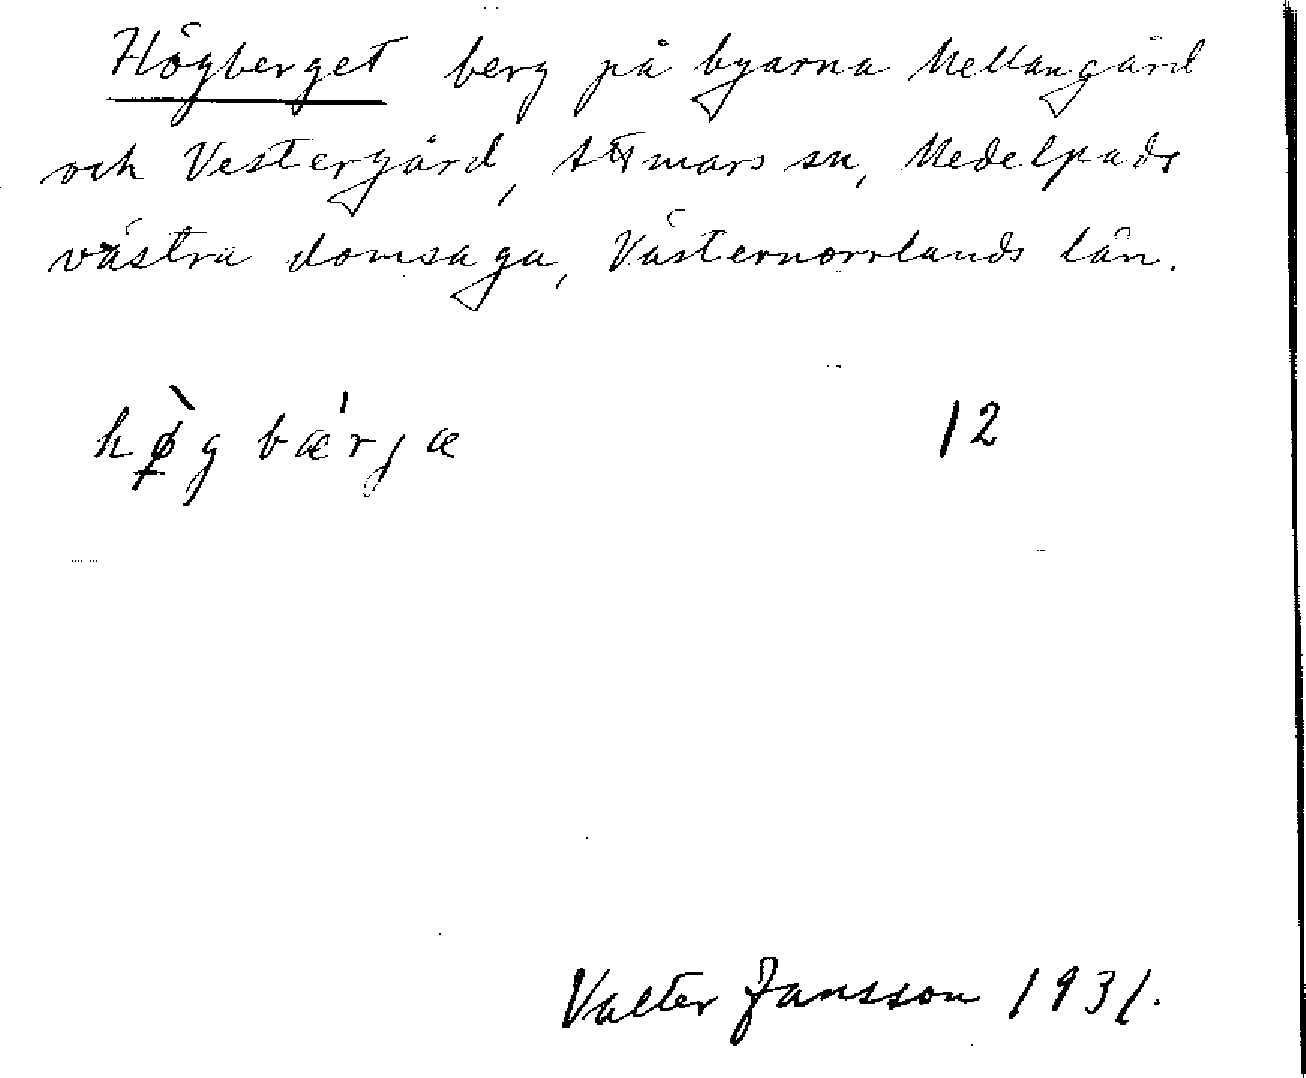 Högberget berg på byarna Mellangård
och Vestergård, Attmars sn, Medelpads
västra domsaga, Västernorrlands län.
hø̀g bæ'rjæ 12
Valter Jansson 1931.